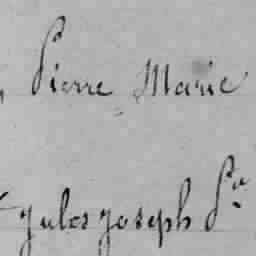 Pierre Marie
Jules Joseph